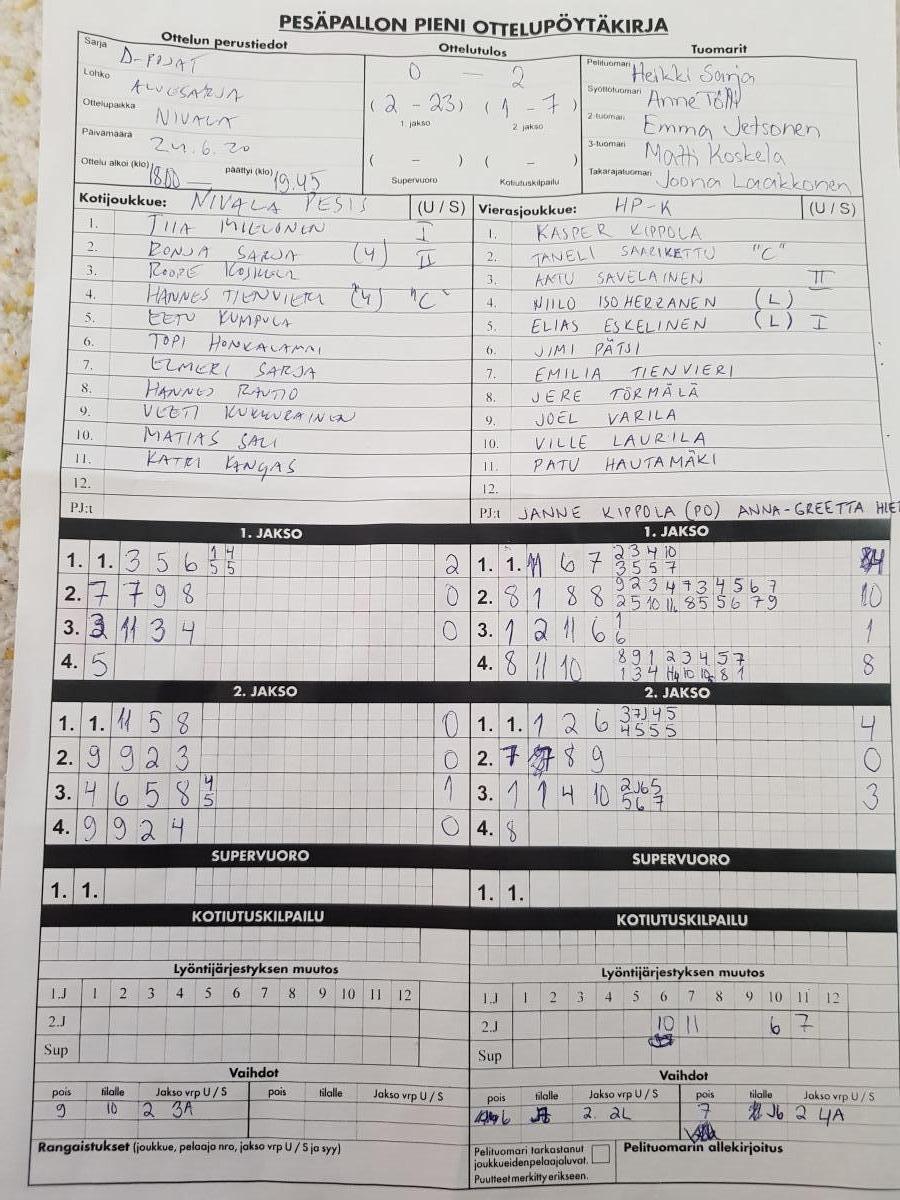 PESÄPALLON PIENI OTTELUPÖYTÄKIRJA
Ottelun perustiedot
Ottelutulos
Tuomarit
Sarja D-POJAT
Lohko ALUESARJA
Ottelupaikka NIVALA
Päivämäärä 24.6.20
Ottelu alkoi (klo) 18.00 — päättyi (klo) 19.45
0 — 2
(2 - 23) (1 - 7)
1. jakso 2. jakso
( - ) ( - )
Supervuoro Kotiutuskilpailu
Pelituomari Heikki Sarja
Syöttötuomari Anne
2-tuomari Emma Jetsonen
3-tuomari Matti Koskela
Takarajatuomari Joona Laakkonen
Kotijoukkue: NIVALA PESIS (U / S)
1. TIIA I
2. RONJA SARJA (4) II
3. ROOPE KOSKELA
4. HANNES TIENVIERI (4) "C"
5. EETU KUMPULA
6. TOPI HONKALAMPI
7. ELMERI SARJA
8. HANNES RAUTIO
9. VEETI KUKKURAINEN
10. MATIAS SALI
11. KATRI KANGAS
12.
PJ:t
Vierasjoukkue: HP-K (U / S)
1. KASPER KIPPOLA
2. TANELI SAARIKETTU "C"
3. AATU SAVELAINEN II
4. NIILO ISOHERRANEN (L)
5. ELIAS ESKELINEN (L) I
6. JIMI PÄTSI
7. EMILIA TIENVIERI
8. JERE TÖRMÄLÄ
9. JOEL VARILA
10. VILLE LAURILA
11. PATU HAUTAMÄKI
12.
PJ:t JANNE KIPPOLA (PO) ANNA-GREETTA
1. JAKSO
1. 1. 3 5 6 1 4 2
5 5
2. 7 7 9 8 0
3. 3 11 3 4 0
4. 5
1. JAKSO
1. 1. 11 6 7 2 3 4 10
3 5 5 7
2. 8 1 8 8 9 2 3 4 7 3 4 5 6 7 10
2 5 10 11 8 5 5 6 7 9
3. 1 2 11 6 1 1
6
4. 8 11 10 8 9 1 2 3 4 5 7 8
1 3 4 10 8 1
2. JAKSO
1. 1. 11 5 8 0
2. 9 9 2 3 0
3. 4 6 5 8 4 1
5
4. 9 9 2 4 0
2. JAKSO
1. 1. 1 2 6 3 7J 4 5 4
4 5 5 5
2. 7 7 8 9 0
3. 1 1 4 10 2 J6 5 3
5 6 7
4. 8
SUPERVUORO
1. 1.
SUPERVUORO
1. 1.
KOTIUTUSKILPAILU
KOTIUTUSKILPAILU
Lyöntijärjestyksen muutos
1.J 1 2 3 4 5 6 7 8 9 10 11 12
2.J
Sup
Lyöntijärjestyksen muutos
1.J 1 2 3 4 5 6 7 8 9 10 11 12
2.J 10 11 6 7
Sup
Vaihdot
pois tilalle Jakso vrp U / S pois tilalle Jakso vrp U / S
9 10 2 3A
Vaihdot
pois tilalle Jakso vrp U / S pois tilalle Jakso vrp U / S
6 2. 2L 7 J6 2 4A
Rangaistukset (joukkue, pelaaja nro, jakso vrp U / S ja syy)
Pelituomari tarkastanut
joukkueiden pelaajaluvat.
Puutteet merkitty erikseen.
Pelituomarin allekirjoitus